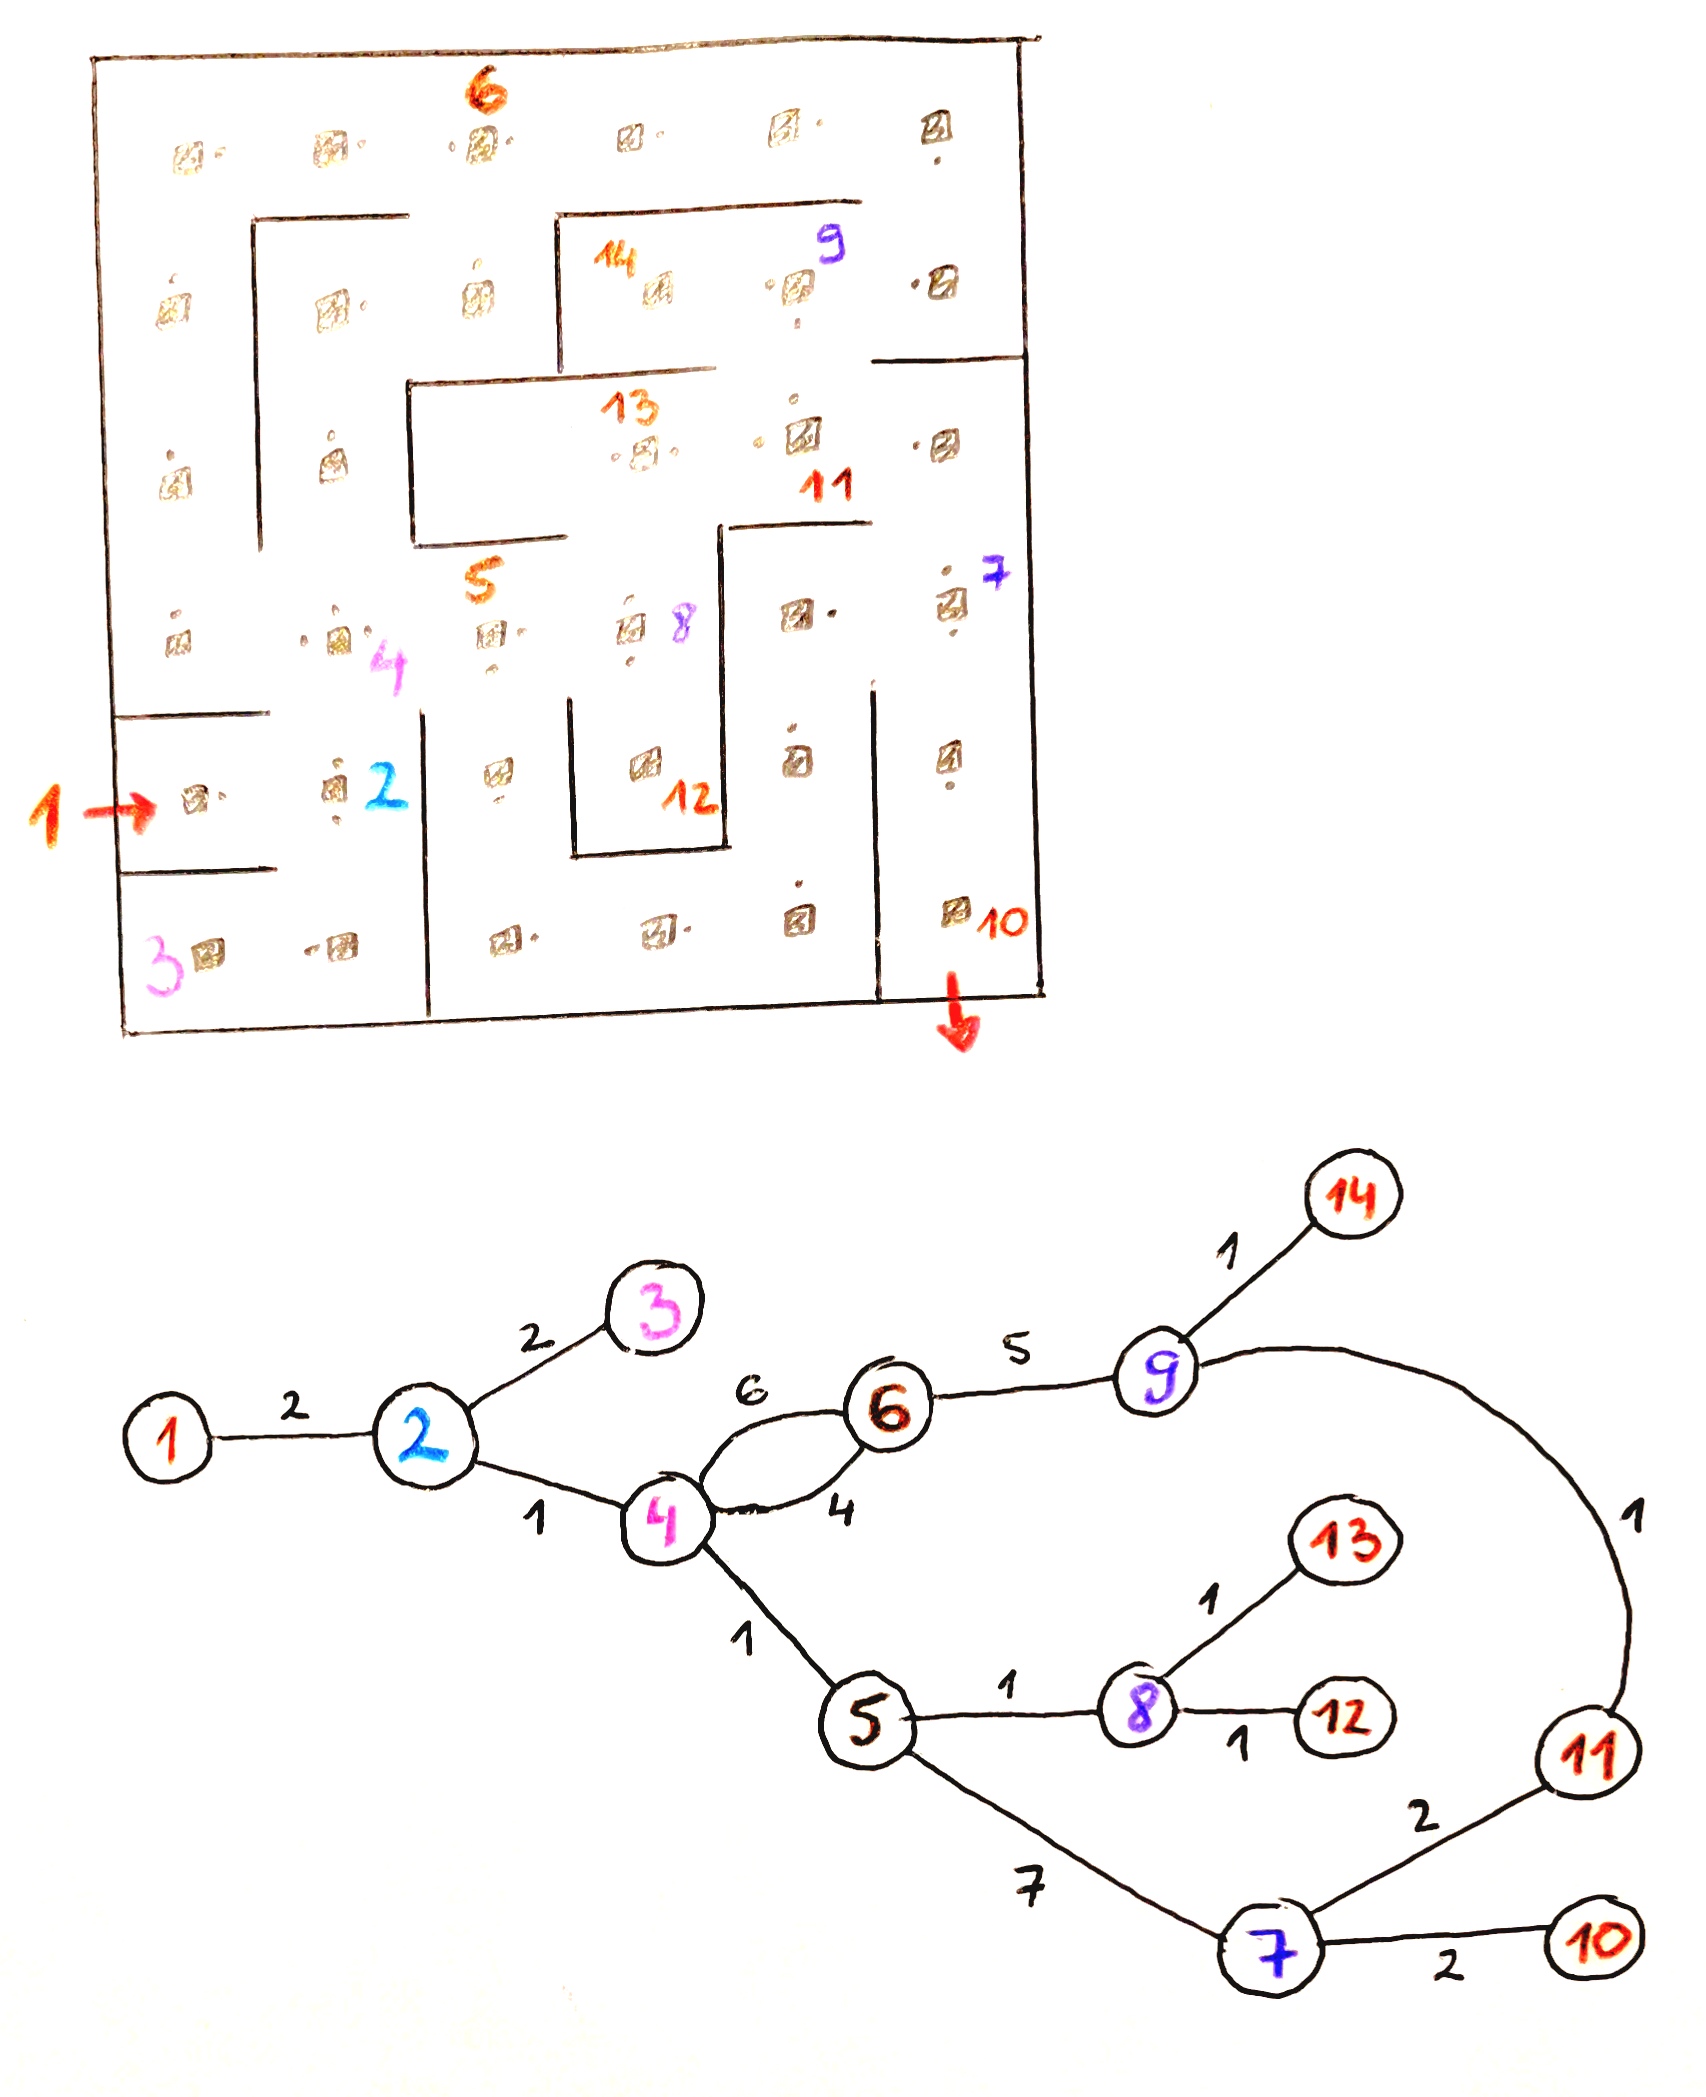 6
14 9
13
11
5 7
8
4
1 2
12
3 10
14
1
3
2
5
9
6
6
2
1 2
1
4
4
1
13
1
1
1
5
8
12
1
11
2
7
7
10
2